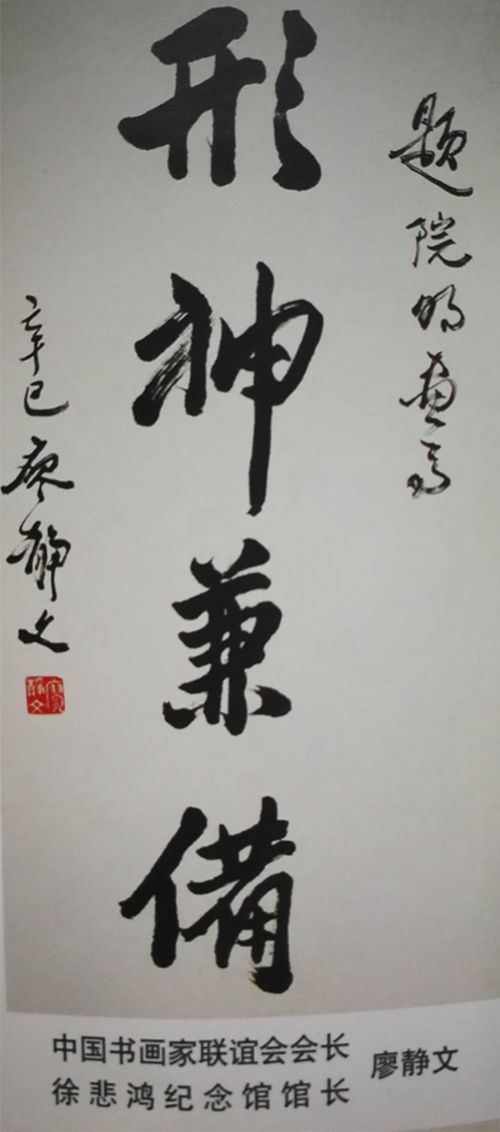 题院明画马
形神兼備
辛巳 廖静文
廖静文
中国书画家联谊会会长
徐悲鸿纪念馆馆长
廖静文